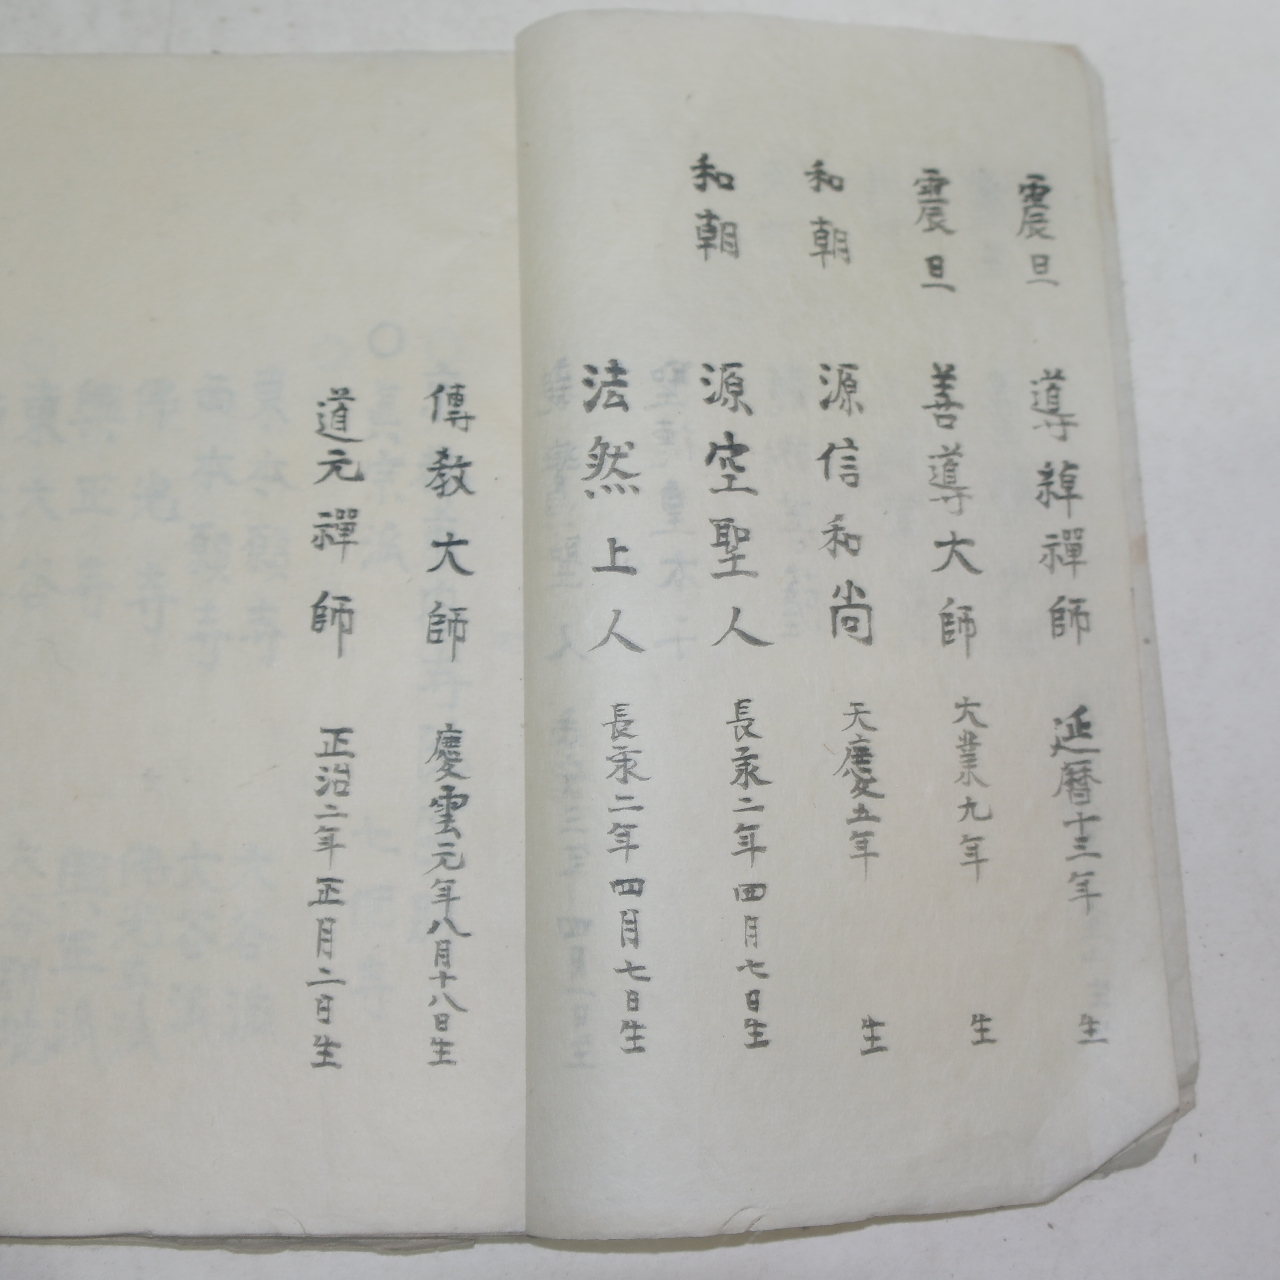 震旦 導綽禪師 延暦十三年 生
震旦 善導大師 大業九年 生
和朝 源信和尚 天慶五年 生
和朝 源空聖人 長承二年四月七日生
法然上人 長承二年四月七日生
傳教大師 慶雲元年八月十八日生
道元禪師 正治二年正月二日生